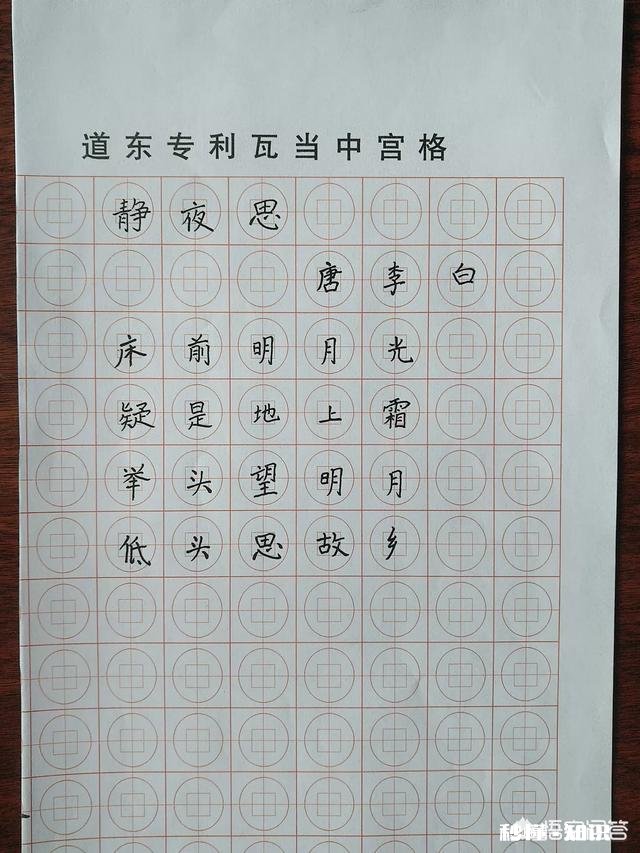 道东专利瓦当中宫格
静夜思
唐李白
床前明月光
疑是地上霜
举头望明月
低头思故乡
悟空问答
秒懂知识